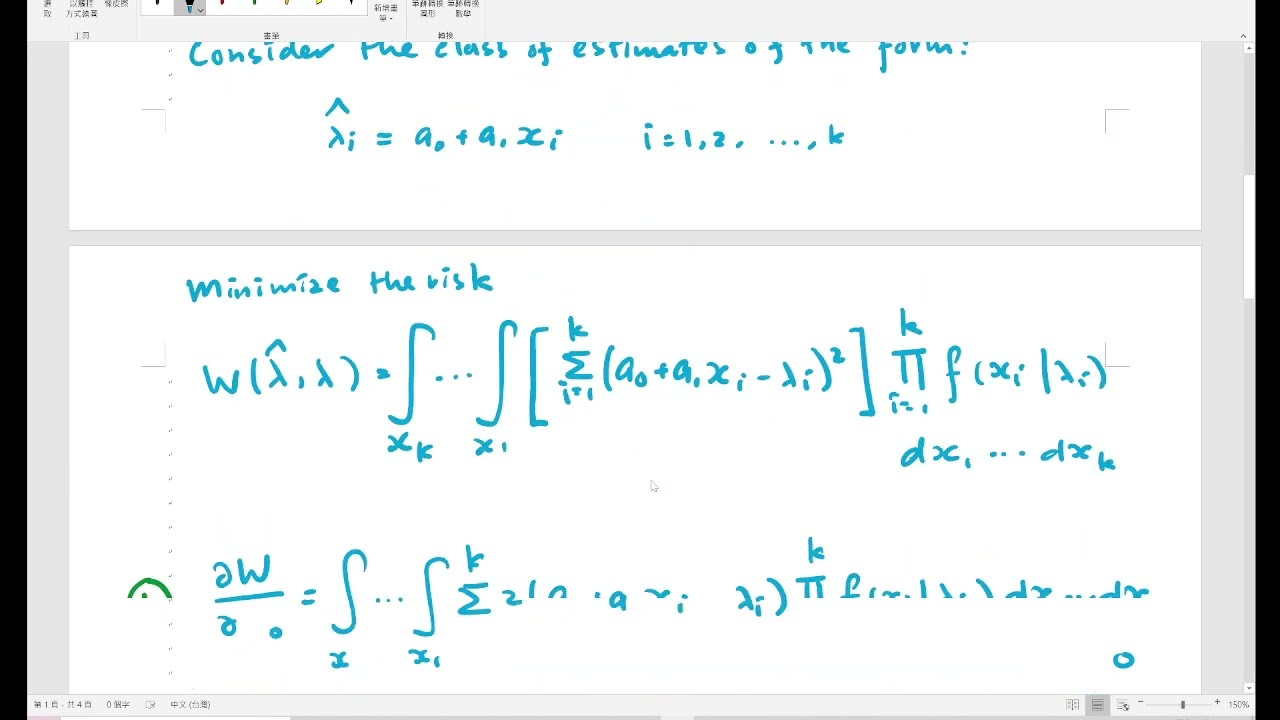 選取
以觸控方式繪圖
橡皮擦
新增畫筆
筆跡轉換圖形
筆跡轉換數學
工具
畫筆
轉換
Consider the class of estimates of the form:
λ̂ᵢ = a₀ + a₁ xᵢ   i = 1, 2, ..., k
Minimize the risk
W(λ̂, λ) = ∫_{x_k} ... ∫_{x₁} [ Σ_{i=1}^{k} (a₀ + a₁ xᵢ − λᵢ)² ] Π_{i=1}^{k} f(xᵢ | λᵢ)
dx₁ ... dx_k
∂W/∂ ₀ = ∫_x ... ∫_{x₁} Σ^k 2( λᵢ) Π^k
0
第 1 頁，共 4 頁 0 個字 中文 (台灣) 150%